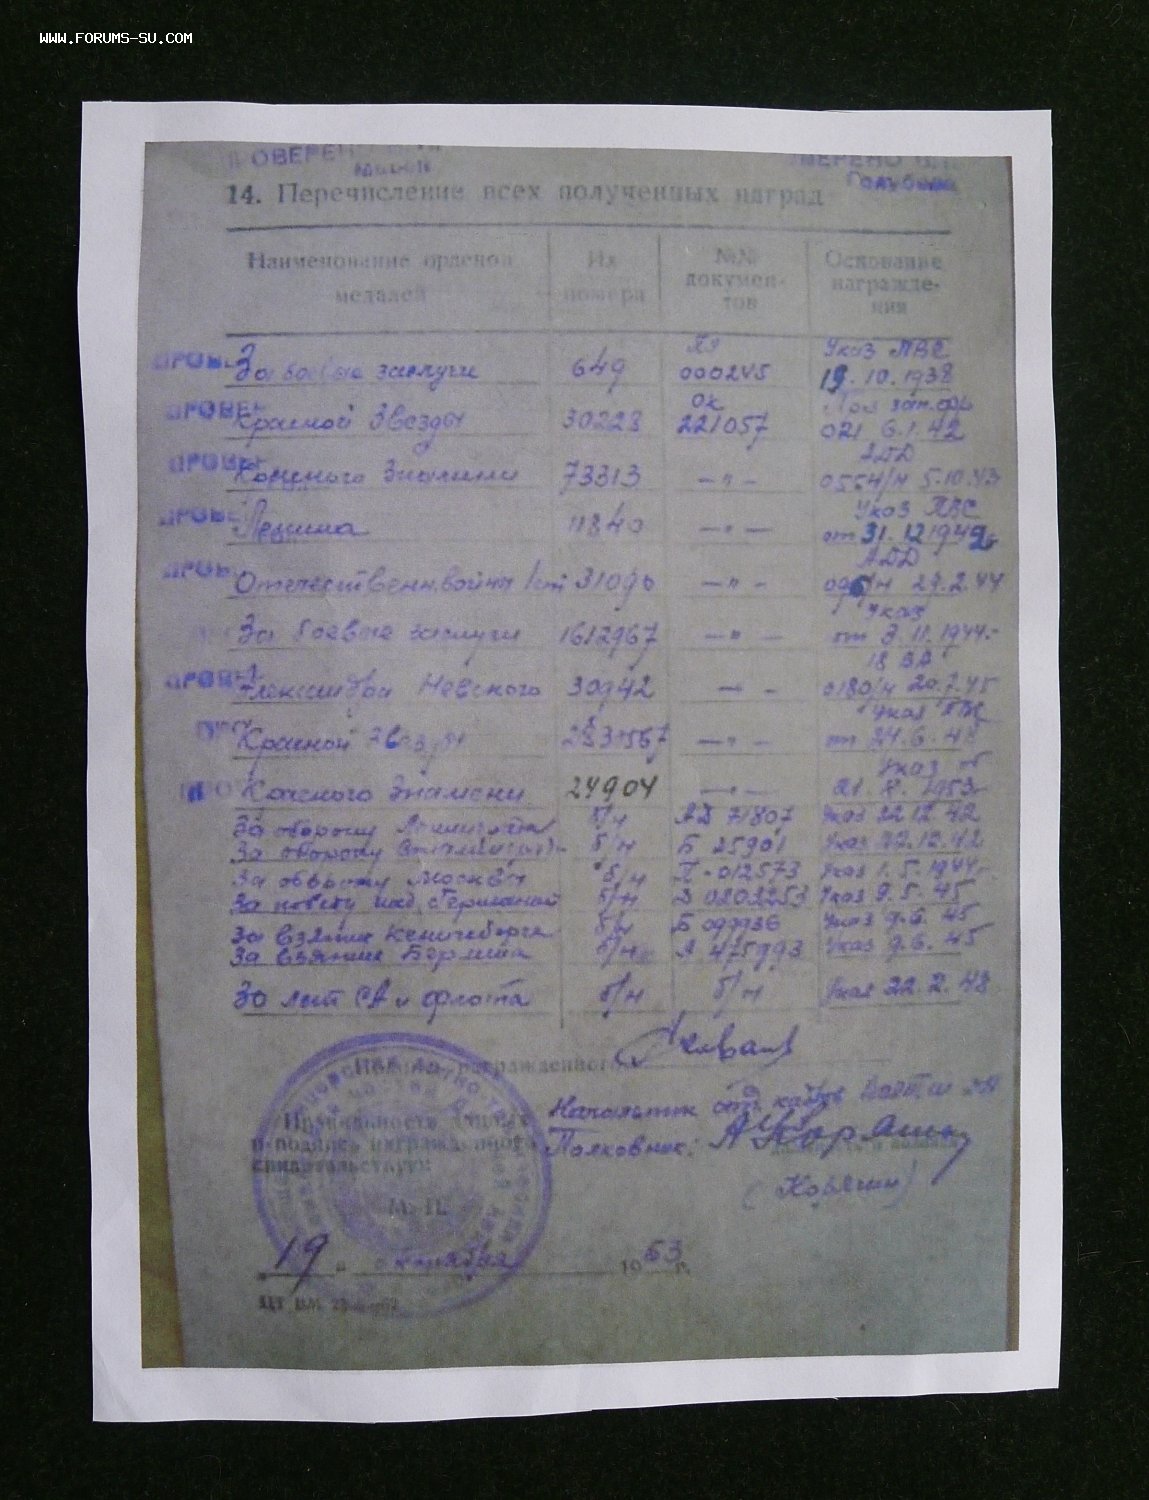 WWW.FORUMS-SU.COM
14. Перечисление всех полученных наград
Наименование орденов медалей
Их номера
№№ документов
Основание награждения
За боевые заслуги 649 000245 Указ ПВС 19.10.1938
Красной Звезды 30228 221057 021 6.1.42
Красного Знамени 73313 —"— АДД 0554/н 5.10.43
Ленина 11840 —"— Указ ПВС от 31.12.1942г
Отечественн. войны 1 ст 31090 —"— АДД 29.2.44
За боевые заслуги 1612967 —"— Указ от 3.11.1944г
Александра Невского 30942 —"— 18 ВА 0180/н 20.7.45
Красной Звезды —"— Указ ПВС от 24.6.48
Красного Знамени 24904 —"— Указ от 1953
За оборону Ленинграда б/н АД 71807 Указ 22.12.42
За оборону Сталинграда б/н Б 25901 Указ 22.12.42
За оборону Москвы б/н П-012573 Указ 1.5.1944г
За победу над Германией б/н 0202253 Указ 9.5.45
За взятие Кенигсберга б/н Б 099936 Указ 9.6.45
За взятие Берлина б/н А 475993 Указ 9.6.45
30 лет СА и флота б/н б/н Указ 22.2.48
Подпись награжденного
Начальник отд. кадров
Правильность данных
и подпись награжденного
свидетельствую:
Полковник:
М. П.
(Корягин)
"19" октября 1953 г.